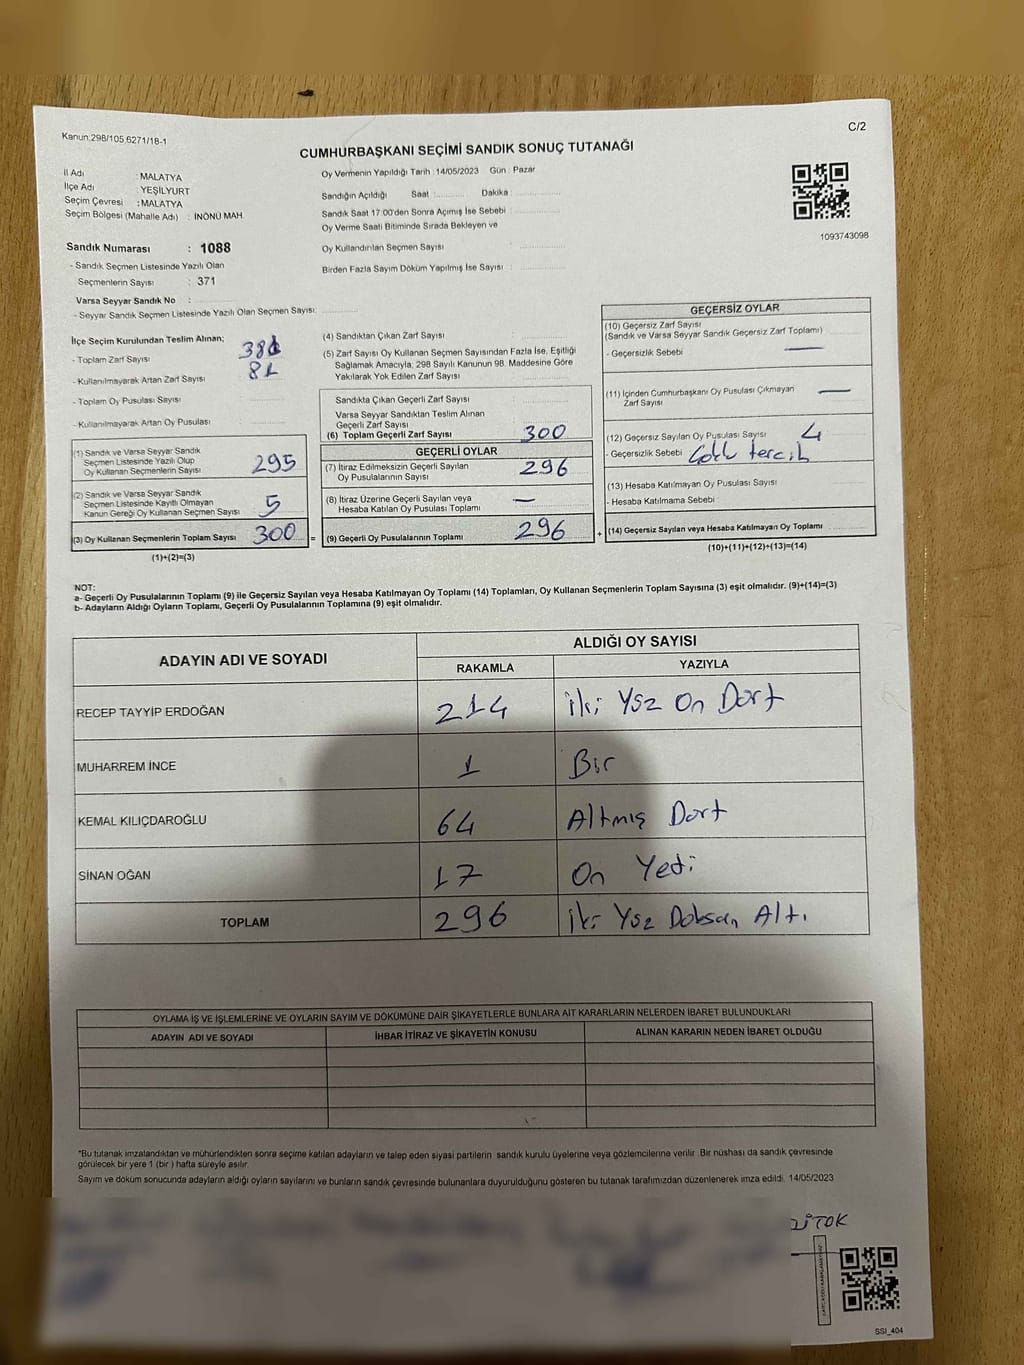 Kanun:298/105,6271/18-1
C/2
CUMHURBAŞKANI SEÇİMİ SANDIK SONUÇ TUTANAĞI
İl Adı : MALATYA
İlçe Adı : YEŞİLYURT
Seçim Çevresi : MALATYA
Seçim Bölgesi (Mahalle Adı) : İNÖNÜ MAH.
Sandık Numarası : 1088
- Sandık Seçmen Listesinde Yazılı Olan
Seçmenlerin Sayısı : 371
Varsa Seyyar Sandık No :
- Seyyar Sandık Seçmen Listesinde Yazılı Olan Seçmen Sayısı:
Oy Vermenin Yapıldığı Tarih : 14/05/2023 Gün : Pazar
Sandığın Açıldığı Saat : Dakika :
Sandık Saat 17.00'den Sonra Açımış İse Sebebi :
Oy Verme Saati Bitiminde Sırada Bekleyen ve
Oy Kullandırılan Seçmen Sayısı :
Birden Fazla Sayım Döküm Yapılmış İse Sayısı :
1093743098
İlçe Seçim Kurulundan Teslim Alınan;
- Toplam Zarf Sayısı 381
- Kullanılmayarak Artan Zarf Sayısı 81
- Toplam Oy Pusulası Sayısı
- Kullanılmayarak Artan Oy Pusulası
(1) Sandık ve Varsa Seyyar Sandık
Seçmen Listesinde Yazılı Olup
Oy Kullanan Seçmenlerin Sayısı 295
(2) Sandık ve Varsa Seyyar Sandık
Seçmen Listesinde Kayıtlı Olmayan
Kanun Gereği Oy Kullanan Seçmen Sayısı 5
(3) Oy Kullanan Seçmenlerin Toplam Sayısı 300 =
(1)+(2)=(3)
(4) Sandıktan Çıkan Zarf Sayısı
(5) Zarf Sayısı Oy Kullanan Seçmen Sayısından Fazla İse, Eşitliği
Sağlamak Amacıyla, 298 Sayılı Kanunun 98. Maddesine Göre
Yakılarak Yok Edilen Zarf Sayısı
Sandıkta Çıkan Geçerli Zarf Sayısı
Varsa Seyyar Sandıktan Teslim Alınan
Geçerli Zarf Sayısı
(6) Toplam Geçerli Zarf Sayısı 300
GEÇERLİ OYLAR
(7) İtiraz Edilmeksizin Geçerli Sayılan
Oy Pusulalarının Sayısı 296
(8) İtiraz Üzerine Geçerli Sayılan veya
Hesaba Katılan Oy Pusulası Toplamı —
(9) Geçerli Oy Pusulalarının Toplamı 296 +
GEÇERSİZ OYLAR
(10) Geçersiz Zarf Sayısı
(Sandık ve Varsa Seyyar Sandık Geçersiz Zarf Toplamı)
- Geçersizlik Sebebi —
(11) İçinden Cumhurbaşkanı Oy Pusulası Çıkmayan —
Zarf Sayısı
(12) Geçersiz Sayılan Oy Pusulası Sayısı 4
- Geçersizlik Sebebi Çoklu tercih
(13) Hesaba Katılmayan Oy Pusulası Sayısı
- Hesaba Katılmama Sebebi
(14) Geçersiz Sayılan veya Hesaba Katılmayan Oy Toplamı
(10)+(11)+(12)+(13)=(14)
NOT:
a- Geçerli Oy Pusulalarının Toplamı (9) ile Geçersiz Sayılan veya Hesaba Katılmayan Oy Toplamı (14) Toplamları, Oy Kullanan Seçmenlerin Toplam Sayısına (3) eşit olmalıdır. (9)+(14)=(3)
b- Adayların Aldığı Oyların Toplamı, Geçerli Oy Pusulalarının Toplamına (9) eşit olmalıdır.
ADAYIN ADI VE SOYADI
ALDIĞI OY SAYISI
RAKAMLA YAZIYLA
RECEP TAYYİP ERDOĞAN 214 iki Yüz On Dört
MUHARREM İNCE 1 Bir
KEMAL KILIÇDAROĞLU 64 Altmış Dört
SİNAN OĞAN 17 On Yedi
TOPLAM 296 iki Yüz Doksan Altı
OYLAMA İŞ VE İŞLEMLERİNE VE OYLARIN SAYIM VE DÖKÜMÜNE DAİR ŞİKAYETLERLE BUNLARA AİT KARARLARIN NELERDEN İBARET BULUNDUKLARI
ADAYIN ADI VE SOYADI İHBAR İTİRAZ VE ŞİKAYETİN KONUSU ALINAN KARARIN NEDEN İBARET OLDUĞU
*Bu tutanak imzalandıktan ve mühürlendikten sonra seçime katılan adayların ve talep eden siyasi partilerin sandık kurulu üyelerine veya gözlemcilerine verilir. Bir nüshası da sandık çevresinde
görülecek bir yere 1 (bir ) hafta süreyle asılır.
Sayım ve döküm sonucunda adayların aldığı oyların sayılarını ve bunların sandık çevresinde bulunanlara duyurulduğunu gösteren bu tutanak tarafımızdan düzenlenerek imza edildi. 14/05/2023
SSI_404